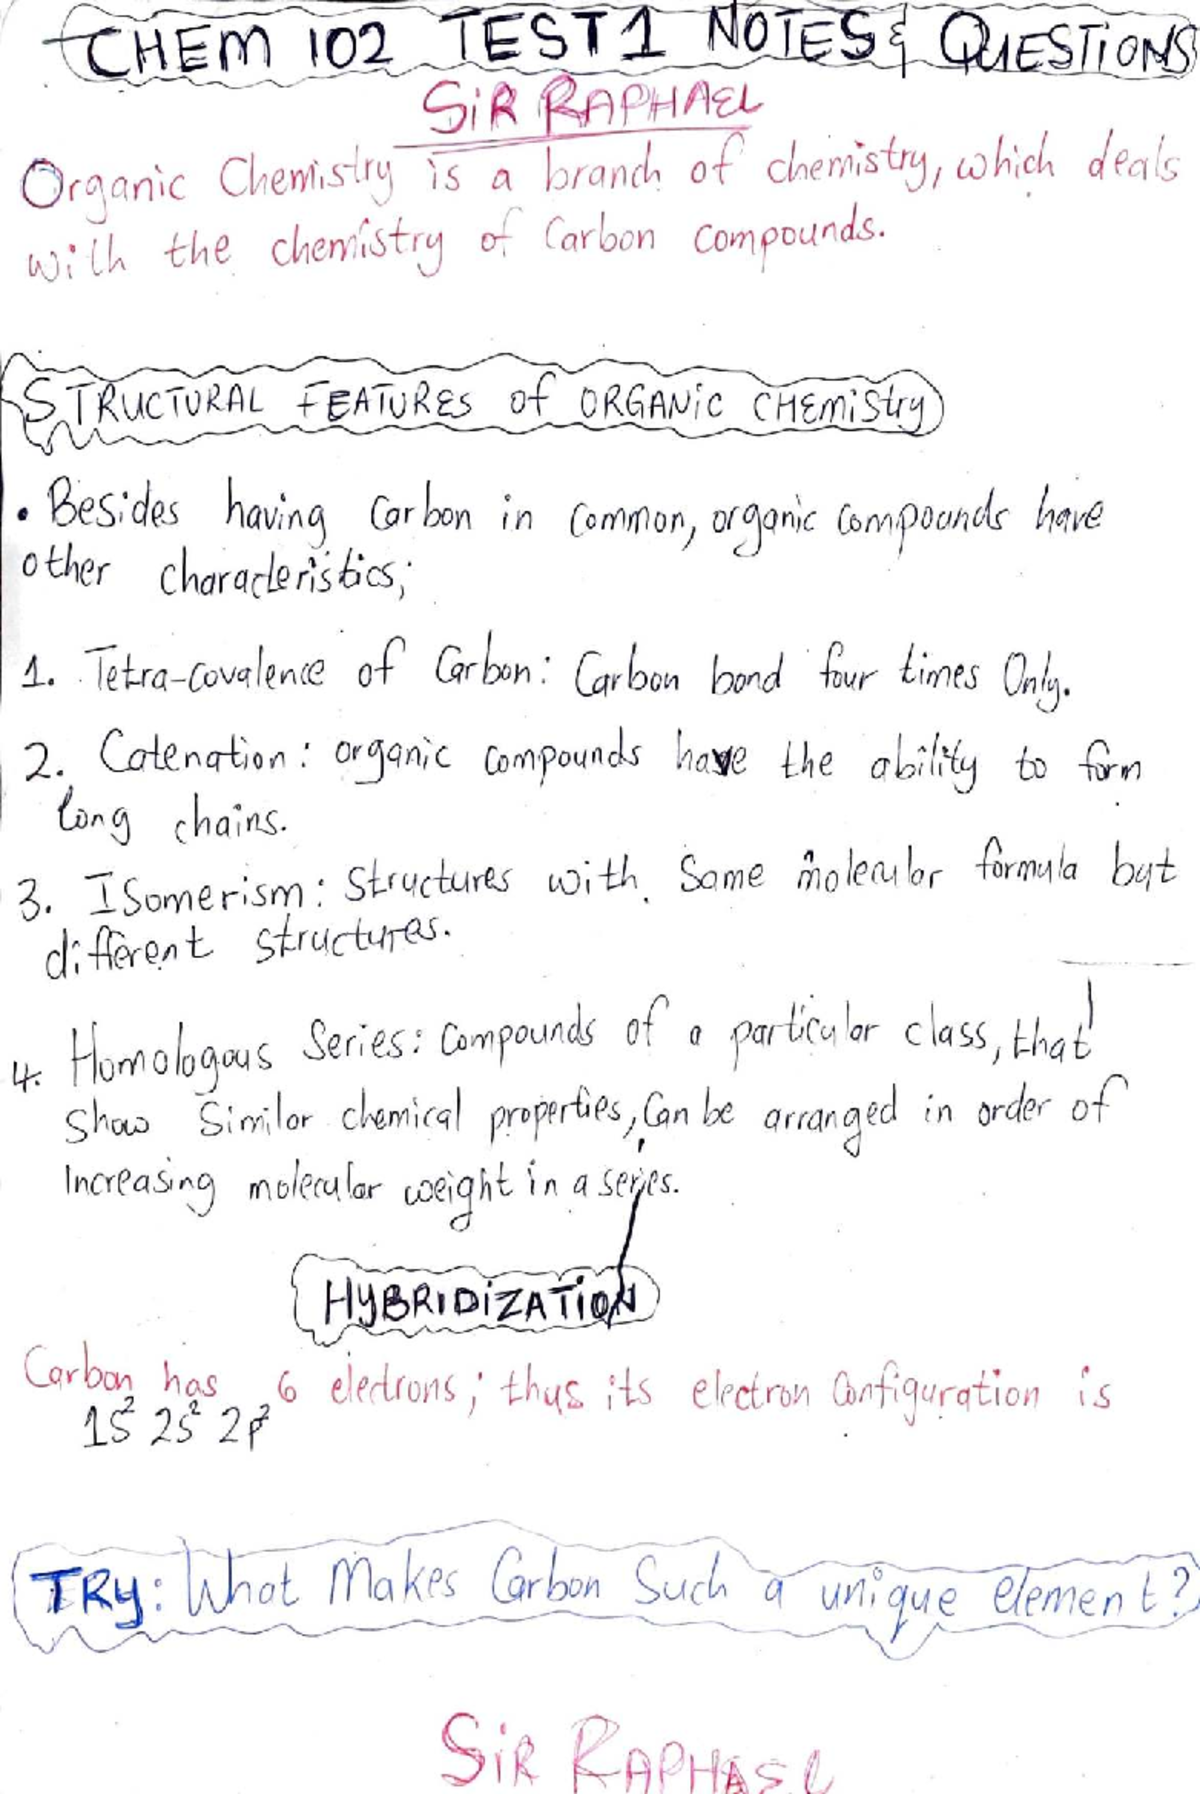 CHEM 102 TEST 1 NOTES & QUESTIONS
SiR RAPHAEL
Organic Chemistry is a branch of chemistry, which deals
with the chemistry of Carbon compounds.
STRUCTURAL FEATURES of ORGANiC CHEMiStry
• Besides having Carbon in Common, organic Compounds have
other characteristics;
1. Tetra-covalence of Carbon: Carbon bond four times Only.
2. Catenation: organic Compounds have the ability to form
long chains.
3. ISomerism: Structures with Same molecular formula but
different structures.
4. Homologous Series: Compounds of a particular class, that
Show Similar chemical properties, Can be arranged in order of
Increasing molecular weight in a series.
HYBRIDiZATiON
Carbon has 6 electrons; thus its electron Configuration is
1S² 2S² 2P²
TRY: What Makes Carbon Such a unique element?
SiR RAPHAEL